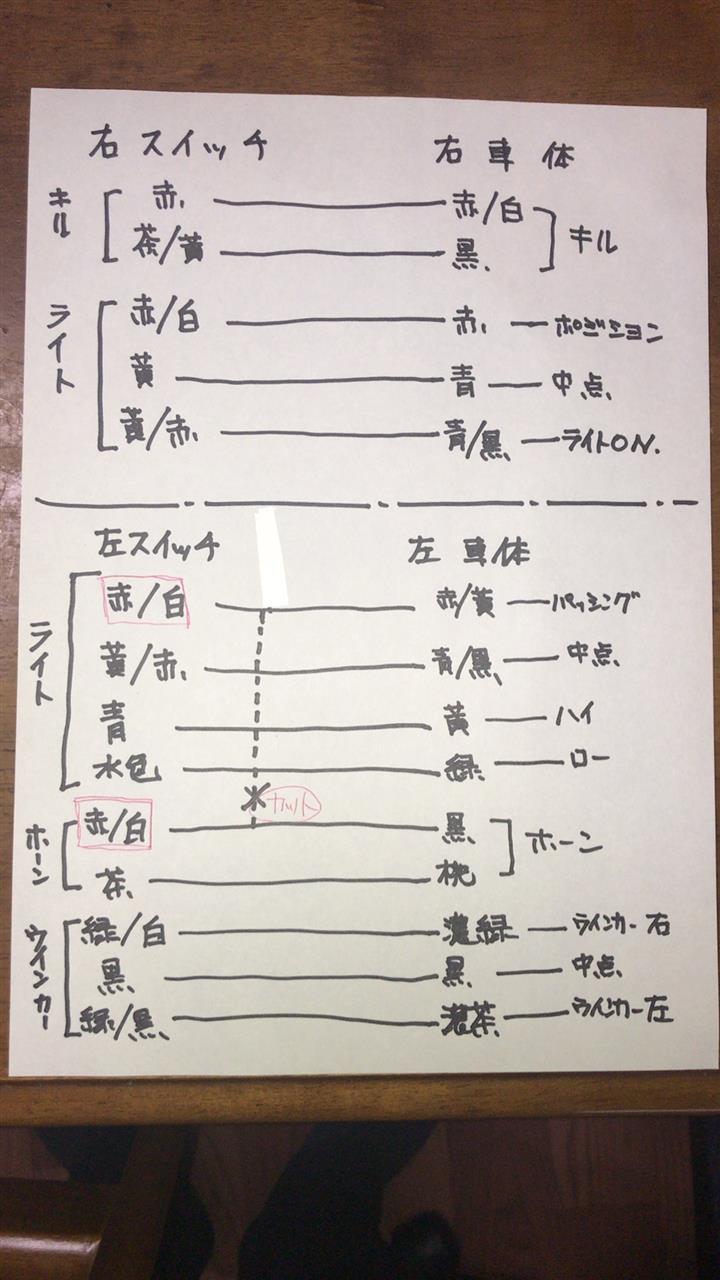 右スイッチ 右車体
キル 赤 赤/白 キル
茶/黄 黒
ライト 赤/白 赤 ポジション
黄 青 中点
黄/赤 青/黒 ライトON.
左スイッチ 左車体
ライト 赤/白 赤/黄 パッシング
黄/赤 青/黒 中点
青 黄 ハイ
水色 緑 ロー
カット
ホーン 赤/白 黒 ホーン
茶 桃
ウインカー 緑/白 濃緑 ウインカー右
黒 黒 中点
緑/黒 濃茶 ウインカー左